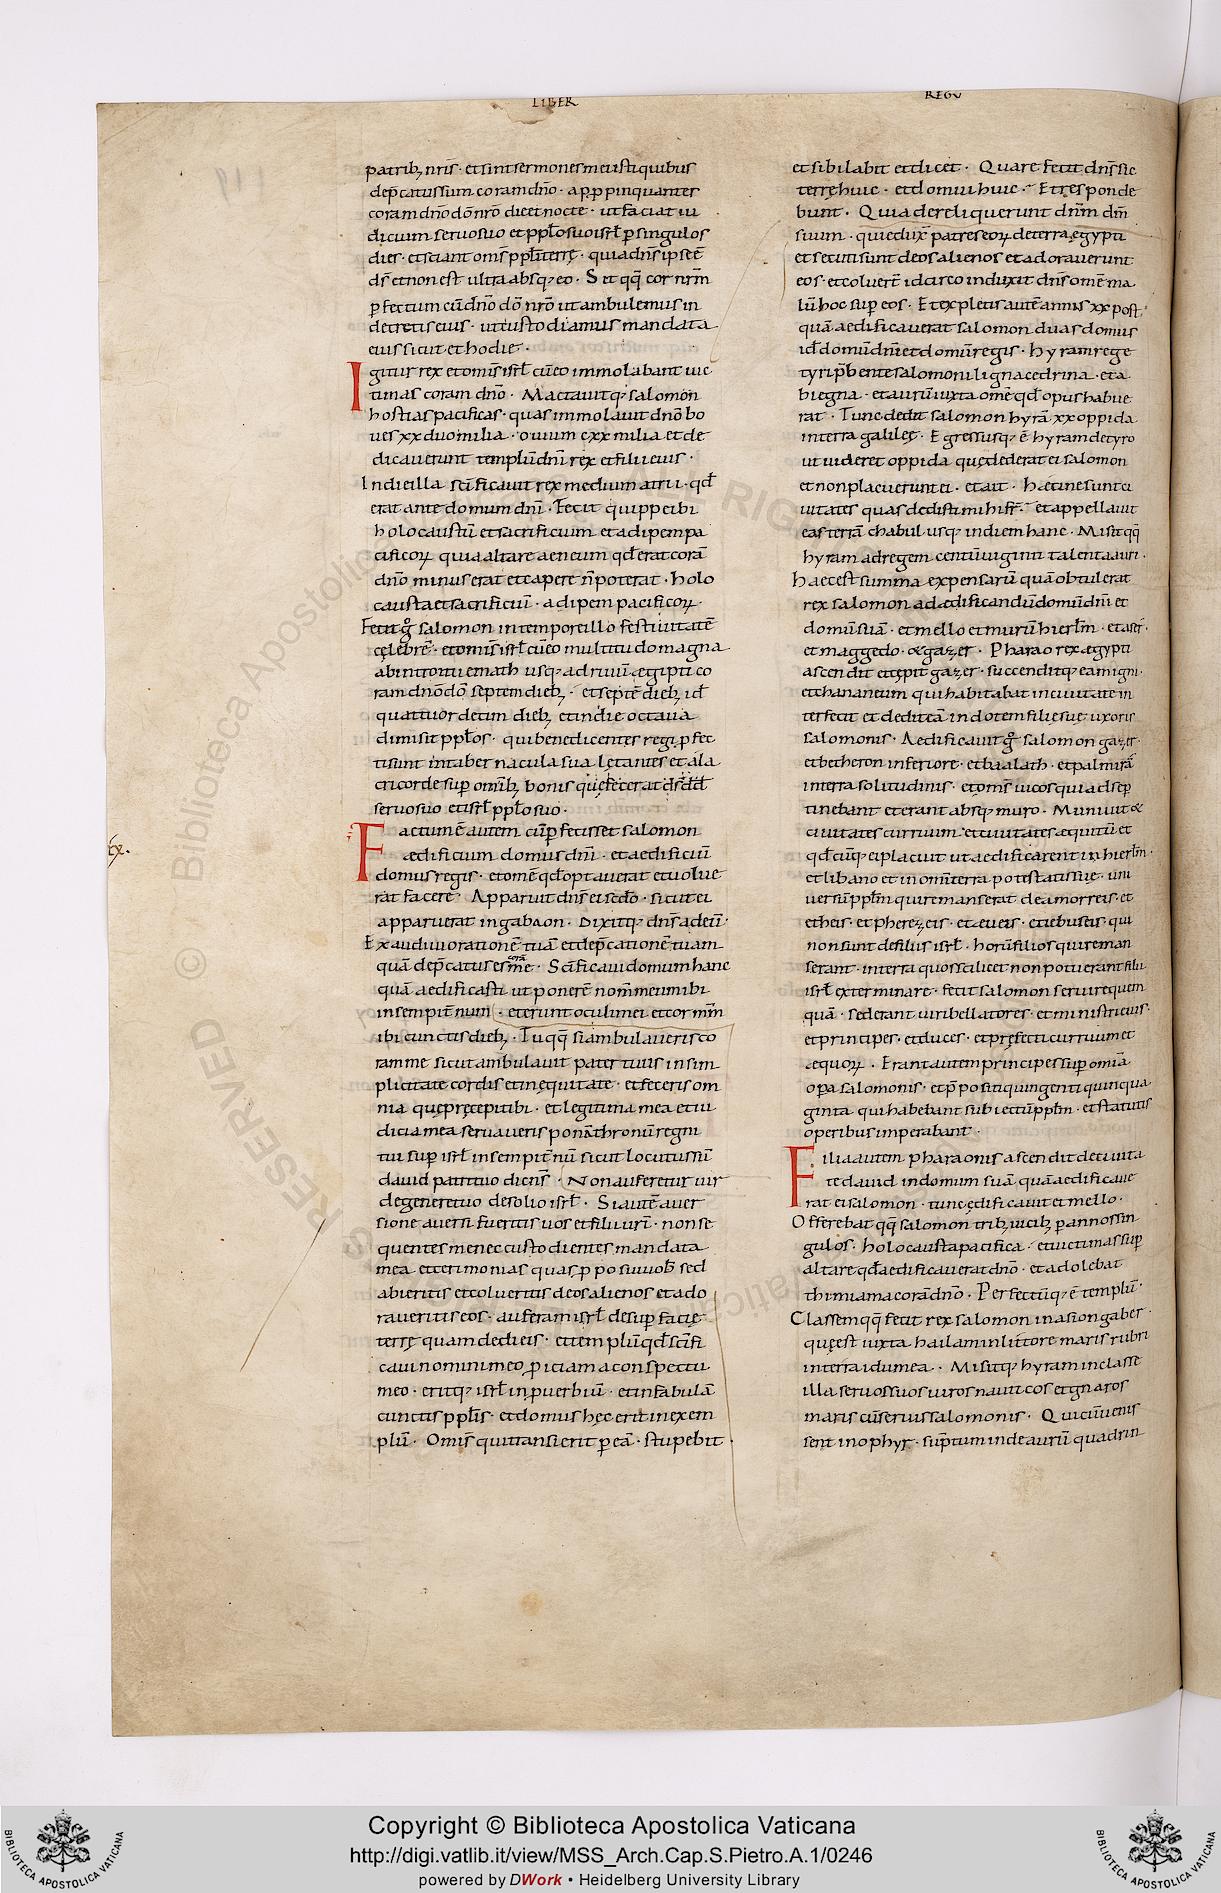 LIBER
REGV
patrib; nr̄is · et sint sermones mei isti quibus
dep̄catus sum coram dn̄o · appropinquantes
coram dn̄o dō nr̄o die et nocte · ut faciat iu
dicium seruo suo et ppl̄o suo isrł p singulos
dies · et sciant oms̄ ppl̄i terrę · quia dn̄s ipse ē
ds̄ et non est ultra absq; eo · Sit qq̄ cor nr̄m
pfectum cū dn̄o dō nr̄o ut ambulemus in
decretis eius · ut custodiamus mandata
eius sicut et hodie ·
Igitur rex et omīs isrł cū eo immolabant uic
timas coram dn̄o · Mactauitq; salomon
hostias pacificas · quas immolauit dn̄o bo
ues xx duo milia · ouium cxx milia et de
dicauerunt templū dn̄i rex et filii eius ·
In die illa scīficauit rex medium atrii · qđ
erat ante domum dn̄i · Fecit quippe ibi
holocaustū et sacrificium et adipem pa
cificoꝝ quia altare aeneum qđ erat corā
dn̄o minus erat et capere n̄ poterat · holo
causta et sacrificiū · adipem pacificoꝝ ·
Fecit g̊ salomon in tempore illo festiuitatē
cęlebrē · et omīs isrł cū eo multitudo magna
ab introitu emath usq; ad riuū ægipti co
ram dn̄o dō septem dieb; · et septē dieb; id
quattuor decim dieb; et in die octaua
dimisit ppl̄os · qui benedicentes regi pfec
ti sunt in tabernacula sua lętantes et ala
cri corde sup omīb; bonis quę fecerat ds̄ dd
seruo suo et isrł ppl̄o suo ·
Factum ē autem cū pfecisset salomon
aedificium domus dn̄i · et aedificiū
domus regis · et omē qđ optauerat et uolue
rat facere · Apparuit dn̄s ei scdō · sicut ei
apparuerat in gabaon · Dixitq; dn̄s ad eū ·
Exaudiui orationē tuā et dep̄cationē tuam
corā
quā dep̄catus es me · Scīficaui domum hanc
quā aedificasti ut ponerē nom̄ meum ibi
in sempit̄num · et erunt oculi mei et cor mm̄
ibi cunctis dieb; · Tu qq̄ si ambulaueris co
ram me sicut ambulauit pater tuus in sim
plicitate cordis et in ęquitate · et feceris om
nia quę pręcepi tibi · et legitima mea et iu
dicia mea seruaueris ponā thronū regni
tui sup isrł in sempit̄nū sicut locutus sū
dauid patri tuo dicens · Non auferetur uir
de genere tuo de solio isrł · Si autē auer
sione auersi fueritis uos et filii urī · non se
quentes me nec custodientes mandata
mea et cerimonias quas pposui uob̄ sed
abieritis et colueritis deos alienos et ado
raueritis eos · auferam isrł de sup facię
terrę quam dedi eis · et templū qđ scīfi
caui nomini meo piciam a conspectu
meo · eritq; isrł in puerbiū · et in fabulā
cunctis ppl̄is · et domus hęc erit in exem
plū · Omīs qui transierit p eā · stupebit ·
et sibilabit et dicet · Quare fecit dn̄s sic
terrę huic · et domui huic · Et responde
bunt · Quia dereliquerunt dn̄m dm̄
suum · qui eduxit patres eoꝝ de terra ęgypti
et secuti sunt deos alienos et adorauerunt
eos · et coluert̄ idcirco induxit dn̄s omē ma
lū hoc sup eos · Expletis autē annis xx post
quā aedificauerat salomon duas domus
id domū dn̄i et domū regis · hyram rege
tyri p̄bente salomoni ligna cedrina · et a
biegna · et aurū iuxta omē qđ opus habue
rat · Tunc dedit salomon hyrā xx oppida
in terra galilęę · Egressusq; ē hyram de tyro
ut uideret oppida quę dederat ei salomon
et non placuerunt ei · et ait · haecine sunt ci
uitates quas dedisti mihi fr̄ · et appellauit
eas terrā chabul usq; in diem hanc · Misit qq̄
hyram ad regem centū uiginti talenta auri ·
haec est summa expensarū quā obtulerat
rex salomon ad aedificandū domū dn̄i et
domū suā · et mello et murū hierlm̄ · et aser ·
et maggedo · & gazer · Pharao rex ægypti
ascendit et cepit gazer · succenditq; eam igni ·
et chananeum qui habitabat in ciuitate in
terfecit et dedit eā in dotem filię suę uxoris
salomonis · Aedificauit g̊ salomon gazer ·
et betheron inferiorē · et baalath · et palmirā
in terra solitudinis · et oms̄ uicos qui ad se p
tinebant et erant absq; muro · Muniuit &
ciuitates curruum · et ciuitates aequitū et
qđcūq; ei placuit ut aedificaret in hierlm̄ ·
et libano et in omī terra potestatis suę · uni
uersū ppl̄m qui remanserat de amorreis · et
etheis · et pherezeis · et æueis · et iebuseis · qui
non sunt de filiis isrł · horū filios qui reman
serant · in terra quos scilicet non potuerant filii
isrł exterminare · fecit salomon seruire quem
quā · sed erant uiri bellatores · et ministri eius ·
et principes · et duces · et pręfecti curruum et
æquoꝝ · Erant autem principes sup omīa
opa salomonis · et p̄positi quingenti quinqua
ginta qui habebant subiectū ppl̄m · et statutis
operibus imperabant ·
Filia autem pharaonis ascendit de ciuita
te dauid in domum suā quā aedificaue
rat ei salomon · tunc ędificauit et mello ·
Offerebat qq̄ salomon trib; uicib; p annos sin
gulos · holocausta pacifica · et uictimas sup
altare qđ aedificauerat dn̄o · et adolebat
thimiama corā dn̄o · Perfectūq; ē templū ·
Classem qq̄ fecit rex salomon in asiongaber ·
quę est iuxta hailam in littore maris rubri
in terra idumea · Misitq; hyram in classe
illa seruos suos uiros nauticos et gnaros
maris cū seruis salomonis · Qui cū uenis
sent in ophyr · sūptum inde aurū quadrin
Copyright © Biblioteca Apostolica Vaticana
http://digi.vatlib.it/view/MSS_Arch.Cap.S.Pietro.A.1/0246
powered by DWork • Heidelberg University Library
BIBLIOTECA APOSTOLICA VATICANA
BIBLIOTECA APOSTOLICA VATICANA